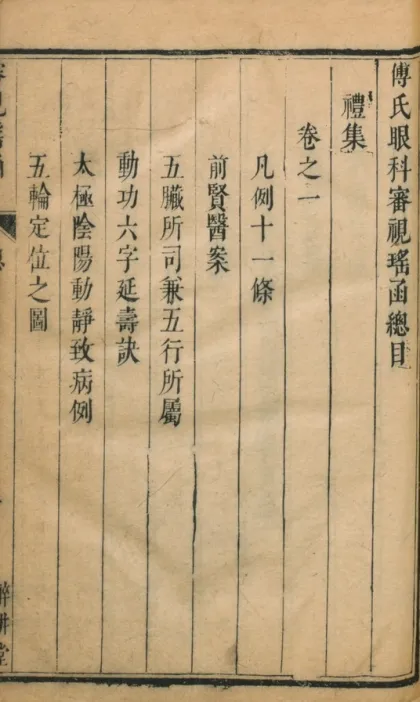 傅氏眼科審視瑤函總目
禮集
卷之一
凡例十一條
前賢醫案
五臟所司兼五行所屬
動功六字延壽訣
太極陰陽動靜致病例
五輪定位之圖